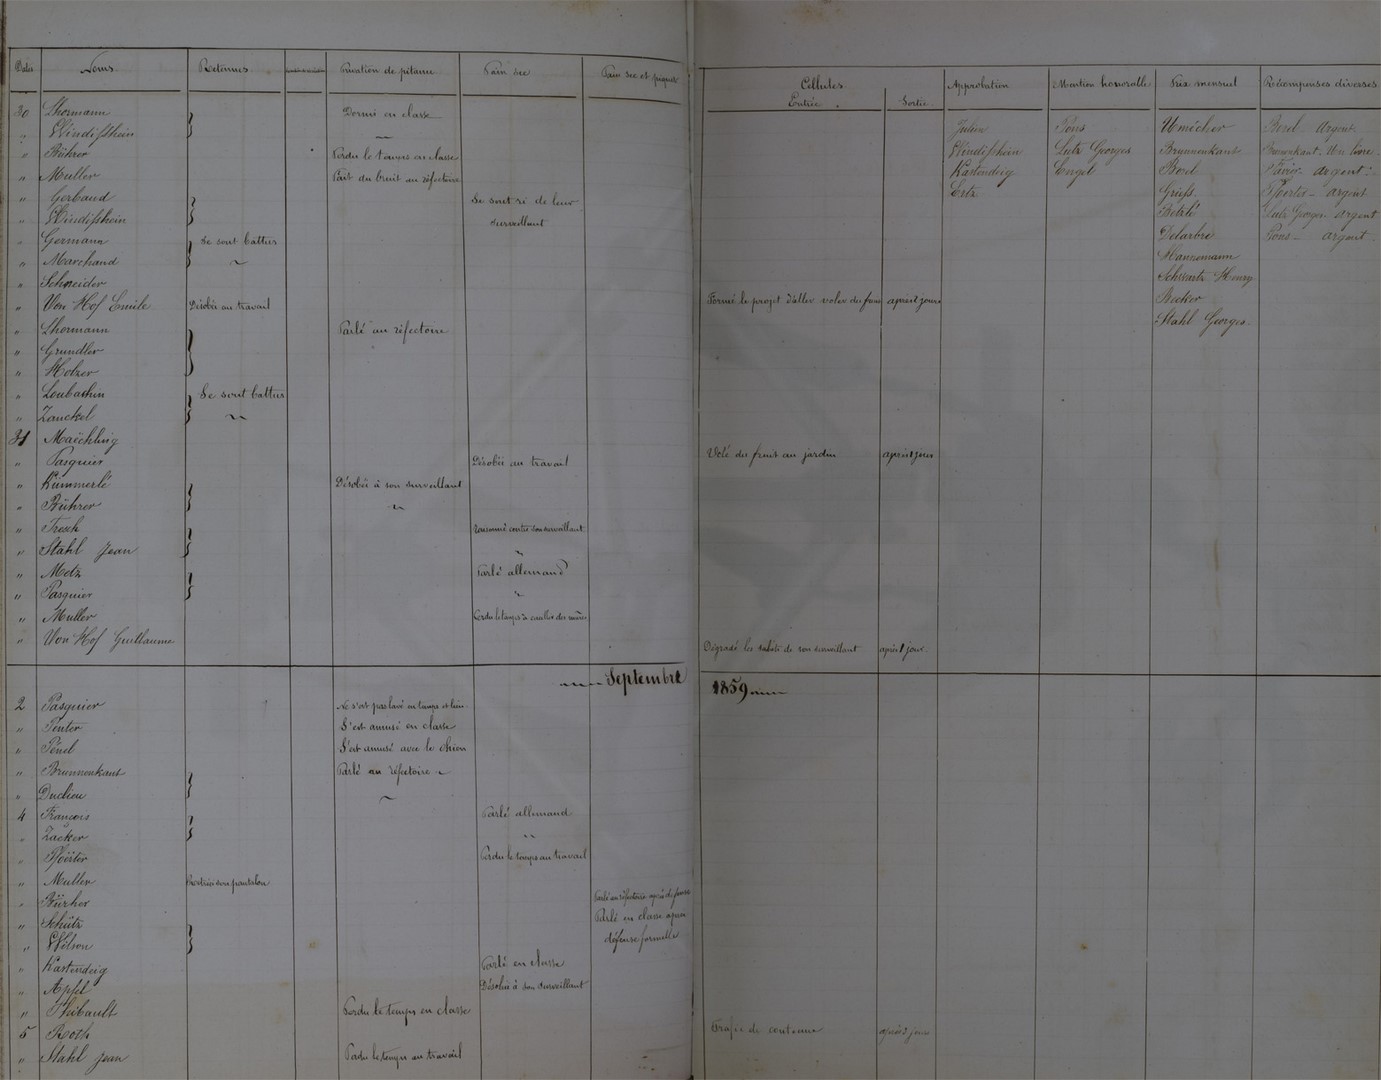 Dates Noms Retenues Privation de pitance Pain sec Pain sec et piquet Cellules Approbation Mention honorable Prix mensuel Récompenses diverses
Entrée Sortie
30 Lhormann Dormi en classe
" Windisthein " Julien Pons Umécher Borel Argent
" Bührer Perdu le temps en classe Windisthein Lutz Georges Brunnenkant Brunnenkant Un livre
" Muller Fait du bruit au réfectoire Kastendeig Engel Borel argent
" Gerbaud Se sont ri de leur Ertz argent
" Windisthein surveillant Lutz Georges argent
" Germann Se sont battus Delarbre Pons argent
" Marchand " Hannemann
" Schneider Henry
" Von Hof Emile Désobéi au travail Formé le projet d'aller voler du après jours Becker
" Lhormann Parlé au réfectoire Stahl Georges
" Grundler
" Holzer
" Loubathin Se sont battus
" Zanckel "
31 Maëchling
" Pasquier Désobéi au travail Volé du fruit au jardin après jours
" Kümmerlé Désobéi à son surveillant
" Bührer "
" Tresch contre son surveillant
" Stahl Jean "
" Metz Parlé allemand
" Pasquier "
" Muller Perdu le temps
" Von Hof Guillaume Dégradé les de son surveillant après 1 jour
Septembre 1859
2 Pasquier Ne s'est pas lavé en temps et lieu
" Penter S'est amusé en classe
" Pénel S'est amusé avec le chien
" Brunnenkant Parlé au réfectoire
" Duclieu "
4 François Parlé allemand
" Zäcker "
" Pförter Perdu le temps au travail
" Muller son pantalon
" Bürher Parlé au réfectoire après défense
" Schütz Parlé en classe après
" Wilson défense formelle
" Kastendeig Parlé en classe
" Apfel Désobéi à son surveillant
" Thibault Perdu le temps en classe
5 Roth Trafic de couteaux après 3 jours
" Stahl Jean Perdu le temps au travail